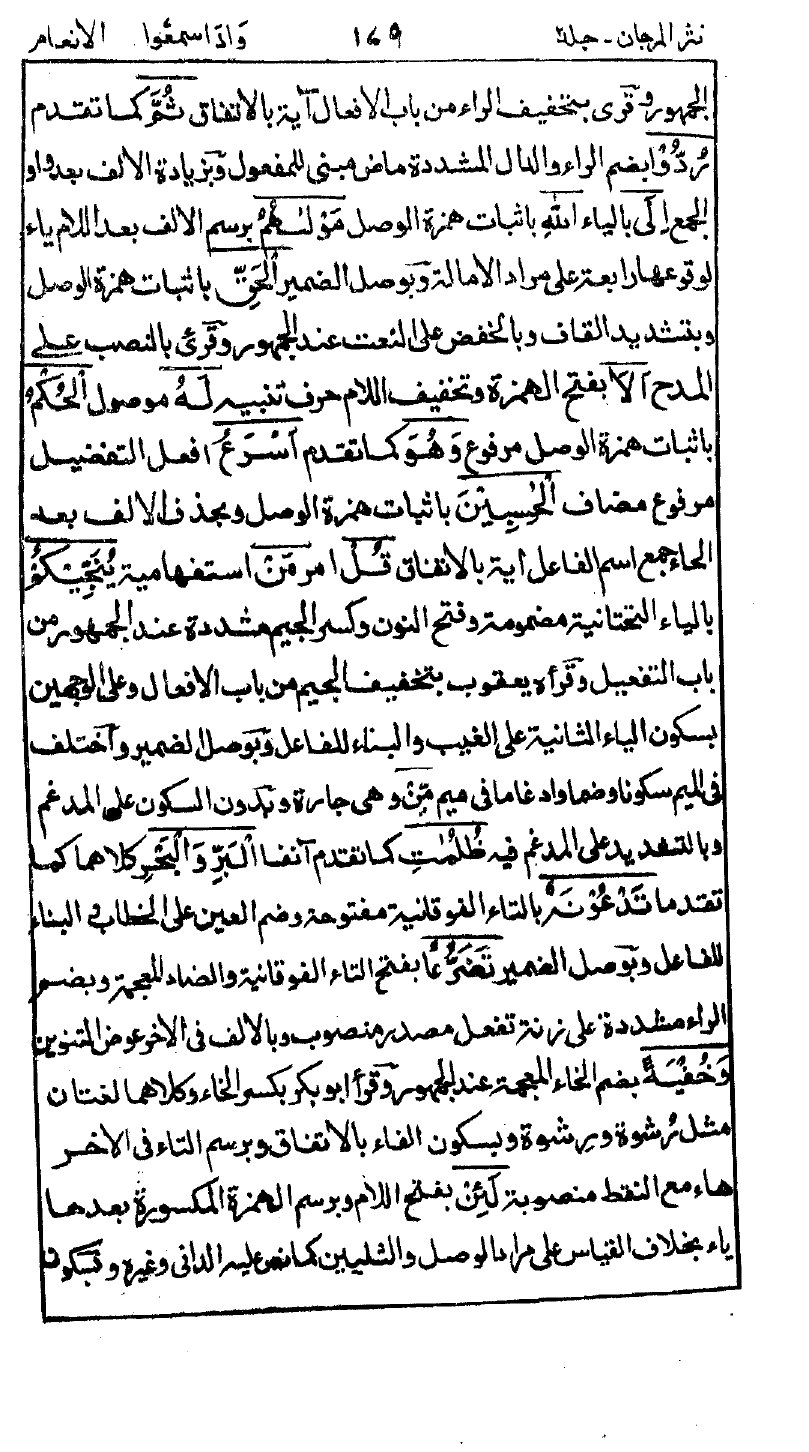 نثر المرجان - جلد٢ ١٦٩ وَاذَا سمعُوا الانعام
الجمهور وَقرئ بتخفيف الراء من باب الافعال آية بالاتفاق ثُمَّ كما تقدم
رُدُّوْا بضم الراء والدال المشددة ماض مبني للمفعول وَبزيادة الالف بعد واو
الجمع اِلَى بالياء اللّٰهِ باثبات همزة الوصل مَوْلٰىهُمُ برسم الالف بعد اللام ياء
لوقوعها رابعة على مراد الامالة وَبوصل الضمير الْحَقِّ باثبات همزة الوصل
وبتشديد القاف وبالخفض على النعت عند الجمهور وَقرئ بالنصب على
المدح اَلَا بفتح الهمزة وتخفيف اللام حرف تنبيه لَهُ موصول الْحُكْمُ
باثبات همزة الوصل مرفوع وَهُوَ كما تقدم اَسْرَعُ افعل التفضيل
مرفوع مضاف الْحٰسِبِيْنَ باثبات همزة الوصل وبحذف الالف بعد
الحاء جمع اسم الفاعل اية بالاتفاق قُلْ امر مَنْ استفهامية يُنَجِّيْكُمْ
بالياء التحتانية مضمومة وفتح النون وكسر الجيم مشددة عند الجمهور من
باب التفعيل وَقرأه يعقوب بتخفيف الجيم من باب الافعال وعلى الوجهين
بسكون الياء الثانية على الغيب والبناء للفاعل وَبوصل الضمير وآختلف
فى الميم سكونا وضما وادغاما فى ميم مِّنْ وهى جارة وبدون السكون على المدغم
وبالتشديد على المدغم فيه ظُلُمٰتِ كما تقدم آنفا الْبَرِّ وَالْبَحْرِ كلاهما كما
تقدما تَدْعُوْنَهٗ بالتاء الفوقانية مفتوحة وضم العين على الخطاب و البناء
للفاعل وبوصل الضمير تَضَرُّعًا بفتح التاء الفوقانية والضاد المعجمة وبضم
الراء مشددة على زنة تفعل مصدر منصوب وبالالف فى الاخر عوض التنوين
وَخُفْيَةً بضم الخاء المعجمة عند الجمهور وَقرأ ابو بكر بكسر الخاء وكلاهما لغتان
مثل رُشوة ورِشوة وبسكون الفاء بالاتفاق وبرسم التاء فى الاخر
هاء مع النقط منصوبة لَئِنْ بفتح اللام وبرسم الهمزة المكسورة بعدها
ياء بخلاف القياس على مراد الوصل والتليين كما نص عليه الدانى وغيره وبسكون